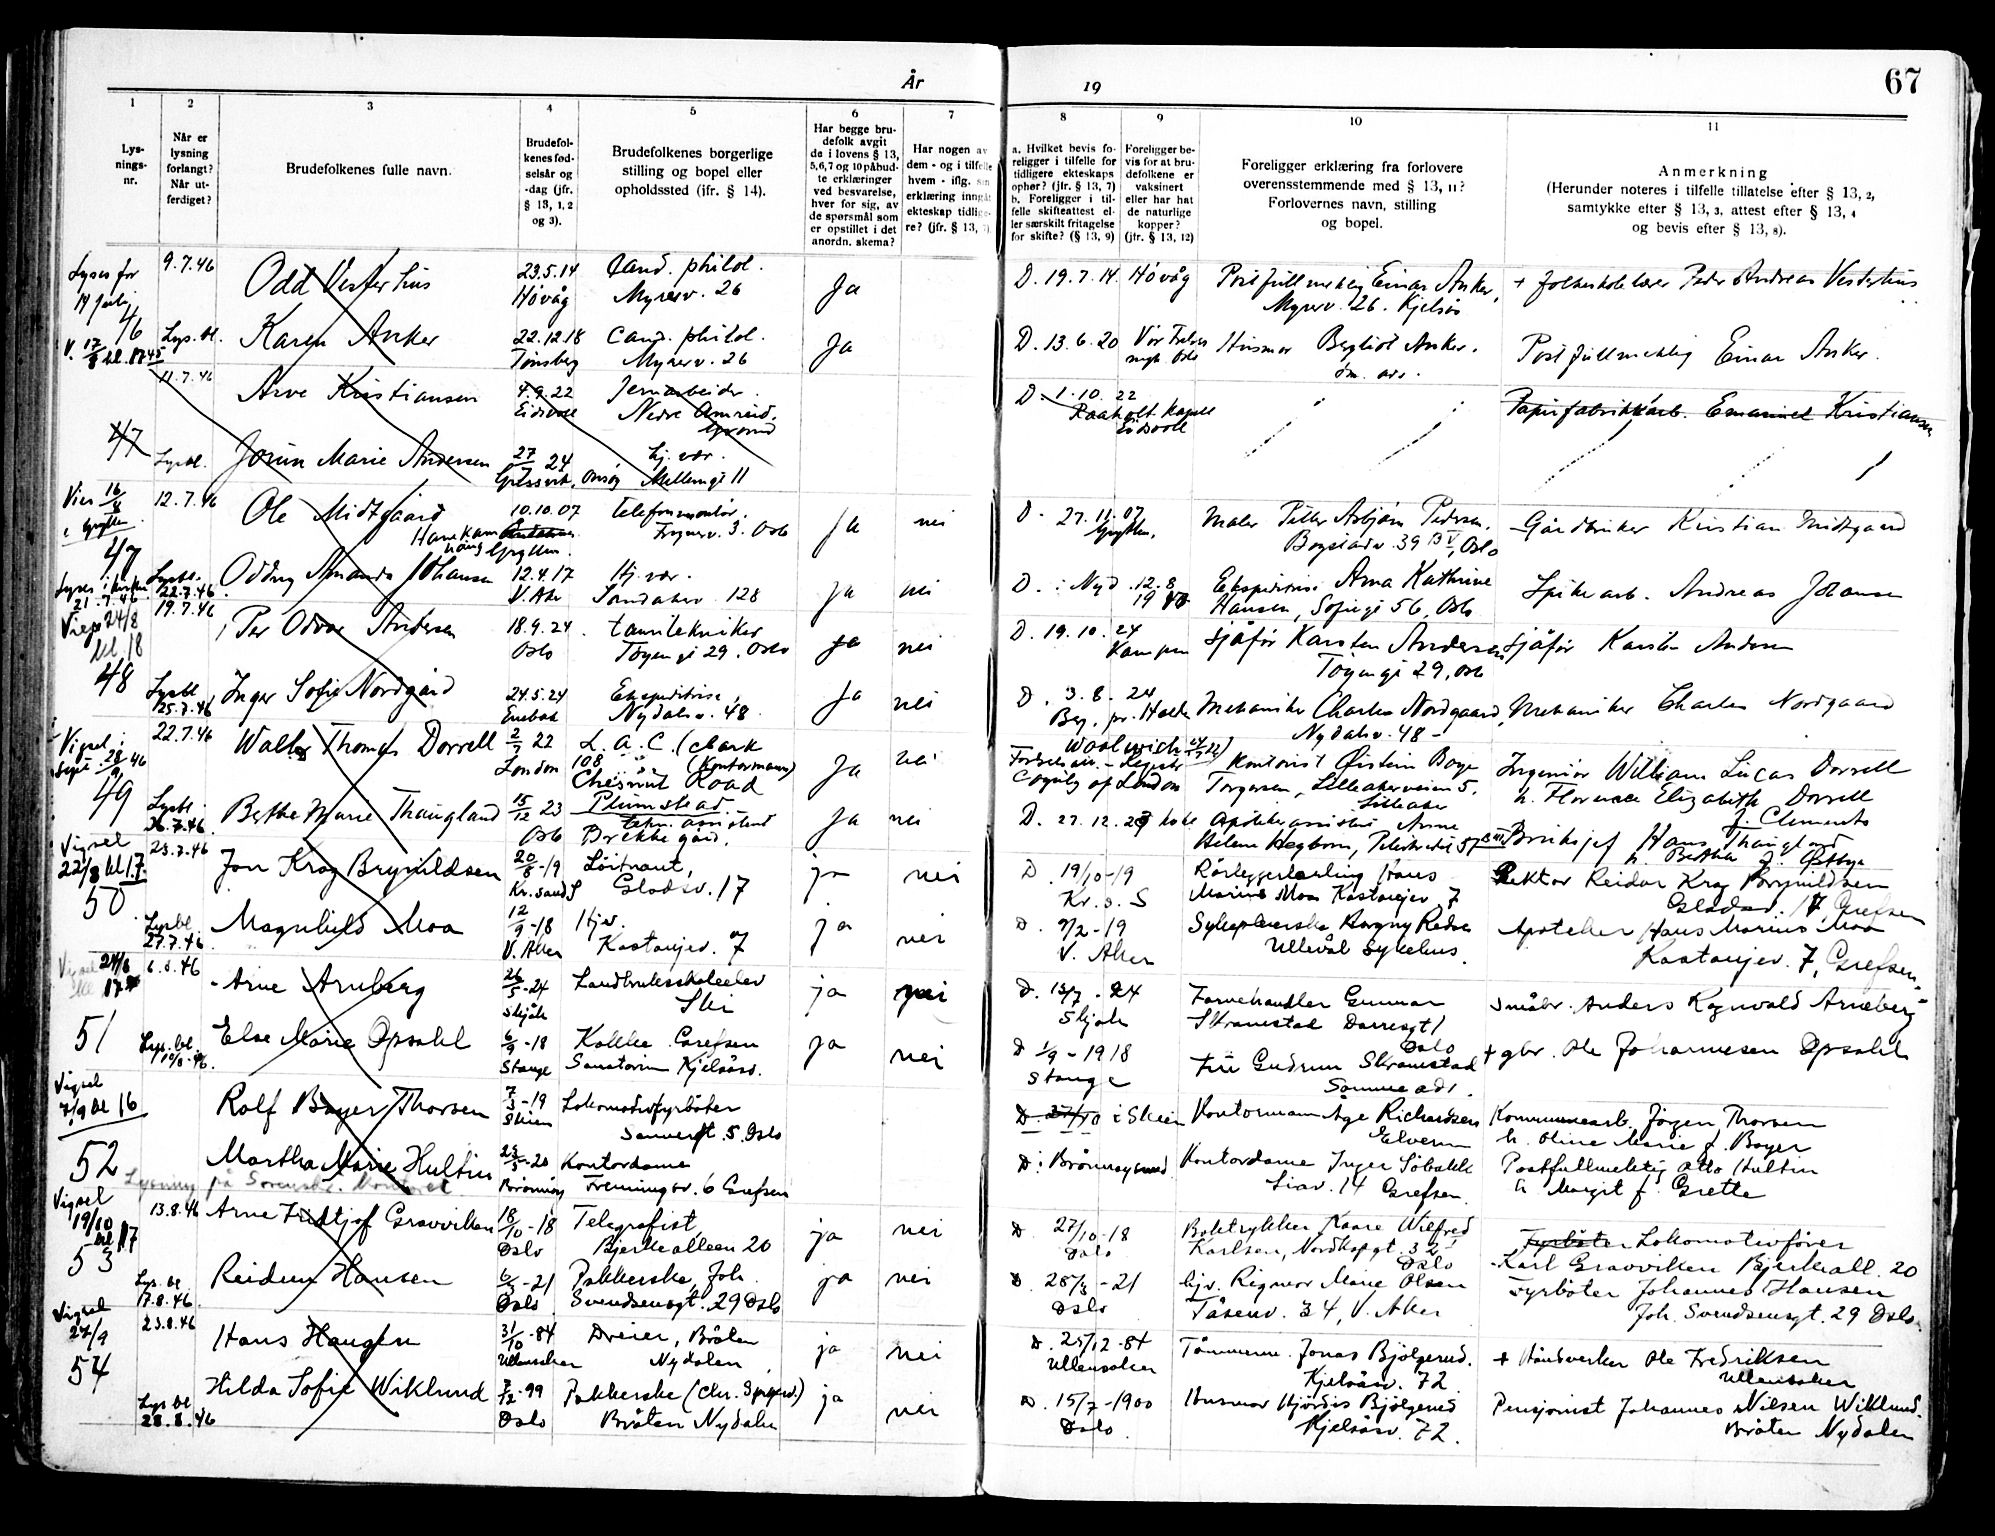 År 19
67
1
2
3
4
5
6
7
8
9
10
11
Lys-
nings-
nr.
Når er
lysning
forlangt?
Når ut-
ferdiget?
Brudefolkenes fulle navn.
Brudefol-
kenes fød-
selsår og
-dag (jfr.
§ 13, 1, 2
og 3).
Brudefolkenes borgerlige
stilling og bopel eller
opholdssted (jfr. § 14).
Har begge bru-
defolk avgit
de i lovens § 13,
5,6,7 og 10 påbud-
te erklæringer
ved besvarelse,
hver for sig, av
de spørsmål som
er opstillet i det
anordn. skema?
Har nogen av
dem - og i tilfelle
hvem - iflg. sin
erklæring inngått
ekteskap tidlige-
re? (jfr. § 13, 7)
a. Hvilket bevis fo-
religger i tilfelle for
tidligere ekteskaps
ophør? (jfr. § 13, 7)
b. Foreligger i til-
felle skifteattest el-
ler særskilt fritagelse
for skifte? (§ 13, 9)
Foreligger be-
vis for at bru-
defolkene er
vaksinert
eller har hat
de naturlige
kopper?
(jfr. § 13, 12)
Foreligger erklæring fra forlovere
overensstemmende med § 13, 11?
Forlovernes navn, stilling
og bopel.
Anmerkning
(Herunder noteres i tilfelle tillatelse efter § 13, 2,
samtykke efter § 13, 3, attest efter § 13, 4
og bevis efter § 13, 8).
Lyses for
14 juli
46
V. 17/8 kl. 17 45
9.7.46
Odd Vesterhus
23.5.14
Høvåg
Cand. philol.
Myrerv. 26
Ja
D. 19.7.14 Høvåg
Postfullmektig Einar Anker,
Myrerv. 26. Kjelsås
+ folkeskolelærer Peder Andreas Vesterhus
Lys.bl.
Karen Anker
22.12.18
Tønsberg
Cand. philol.
Myrerv. 26
Ja
D. 13.6.20 Vor Frelsers
mgh. Oslo
Husmor Bergliot Anker.
sm. adr.
Postfullmektig Einar Anker.
47
11.7.46
Arve Kristiansen
4.9.22
Eidsvoll
Jernarbeider
Nedre
D. 1.10.22
Raaholt kapell
Eidsvoll
Papirfabrikkarb. Emanuel Kristiansen
Lysbl.
Jorun Marie Andersen
27/7 24
Gressvik, Onsøy
hj. vær.
Mellemgt 11
Vies 16/8
i Grytten
47
12.7.46
Ole Midtgaard
10.10.07
Grytten.
telefonmontør.
Frognerv. 3. Oslo
Ja
nei
D. 27.11.07
Grytten.
Maler Petter Asbjørn Pedersen.
Bogstadv. 39 B V, Oslo
Gårdbruker Kristian Midtgaard
Lyses i kirken
21.7.46
Lysbl.
22.7.46
Oddny Amanda Johansen
12.4.17
V. Aker
Hj. vær.
Sandakerv. 128
Ja
nei
D. i Nyd. 12.8
19
Ekspeditrise Arna Kathrine
Hansen, Sofiegt 56, Oslo
Spikerarb. Andreas Johansen
Vies 24/8
kl. 18
48
19.7.46
Per Oddvar Andersen
18.9.24
Oslo
tanntekniker
Tøyengt 29. Oslo
Ja
nei
D. 19.10.24
Kampen
Sjåfør Karsten Andersen
Tøyengt 29, Oslo
Sjåfør Karsten Andersen
Lysbl.
25.7.46
Inger Sofie Nordgård
24.5.24
Enebak
Ekspeditrise,
Nydalsv. 48
Ja
nei
D. 3.8.24
Mekaniker Charles Nordgaard,
Nydalsv. 48
Mekaniker Charles Nordgaard
Vigsel
Sept. 28/9 46
49
22.7.46
Walter Thomas Dorrell
2/7 22
London
L.A.C. (clerk
108 (Kontormann)
Chesnut Road
Plumstead
Ja
nei
Woolwich
County of London
Kontorist Øistein Boye
Torgersen, Lilleakerveien 5.
Lilleaker
Ingeniør William Lucas Dorrell
h. Florence Elizabeth Dorrell
f. Clements
Lysbl.
26.7.46
Berthe Marie Thaugland
15/12 23
Oslo
tekn. assistent
Brekke gård.
Ja
nei
D. 27.12.23
Apotekerassistent Anne
Helene Hegbom, Pilestredet 57 III
Bruksjef Hans Thaugland
h. Berthe f. Østbye
Vigsel
22/8 kl 17.
50
23.7.46
Jon Krag Brynildsen
20/8-19
Kr.sand S
Løitnant,
Gladsv. 17
ja
nei
D 19/10-19
Kr. s. S
Rørleggerlærling Hans
Marius Moa Kastanjev. 7
Rektor Reidar Krag Brynildsen
Gladsv. 17, Grefsen
Lysbl.
27.7.46
Magnhild Moa
12/9-18
V. Aker
Hjv.
Kastanjev. 7
ja
nei
D. 9/2-19
V. Aker
Sykepleierske Borgny Redse
Ullevål Sykehus.
Apoteker Hans Marius Moa
Kastanjev. 7, Grefsen
Vigsel 24/8
kl 17
51
6.8.46
Arne Arneberg
26/5-24
Skjåk
Landbruksskoleelev
Ski
ja
nei
D. 13/7-24
Skjåk
Farvehandler Gunnar
Skramstad Darresgt 1
Oslo
Småbr. Anders Ragnvald Arneberg
Lys.bl.
10/8-46.
Else Marie Opsahl
6/9-18
Stange
Kokke Grefsen
Sanatorium Kjelsåsv.
ja
nei
D 1/9-1918
Stange
Fru Gudrun Skramstad
Samme adr.
+ gbr. Ole Johannesen Opsahl
Vigsel
7/9 kl 16
52
Rolf Bøyer Thorsen
7/3-19
Skien
Lokomotivfyrbøter
Sannergt. 5. Oslo
D. i Skien
Kontormann Åge Richardsen
Elverum
Kommunearb. Jørgen Thorsen
h. Oline Marie f. Bøyer
Martha Marie Hultin
23/5-20
Brønnøy
Kontordame
Frenningsv. 6 Grefsen
D. i Brønnøysund
Kontordame Inger Solbakk
Liav. 14 Grefsen.
Postfullmektig Otto Hultin
h. Margit f. Grette
Lysning på Sorensk. kontoret
Vigsel
19/10
kl 17
53
13.8.46
Arne Fridtjof Gravviken
18/10-18
Oslo
Telegrafist,
Bjerkealleen 20
ja
nei
D 27/10-18
Oslo
Boktrykker Kaare Wilfred
Karlsen, Nordkapgt. 32
Oslo
Fyrbøter Lokomotivfører
Karl Gravviken Bjerkeall. 20
Lys. bl.
17.8.46
Reidun Hansen
6/3-21
Oslo
Pakkerske, Joh.
Svendsensgt. 29 Oslo
ja
nei
D. 28/3-21
Oslo
hjv. Rigmor Marie Olsen
Tåsenv. 34, V. Aker
Fyrbøter Johannes Hansen
Joh. Svendsensgt. 29 Oslo
Vigsel
27/9
54
23.8.46
Hans Haugen
31/10-84
Ullensaker
Dreier, Bråten
Nydalen
ja
nei
D. 25/12-84
Ullensaker
Tømmerm. Jonas Bjølgerud.
Kjelsåsv. 72
+ Håndverker Ole Fredriksen
Ullensaker
Lys bl
28.8.46
Hilda Sofie Wiklund
7/12-99
Oslo
Pakkerske (Chr. Spigerv.)
Bråten Nydalen
ja
nei
D. 15/7-1900
Oslo.
Husmor Hjørdis Bjølgerud
Kjelsåsv. 72.
Pensjonist Johannes Nilsen Wiklund.
Bråten Nydalen